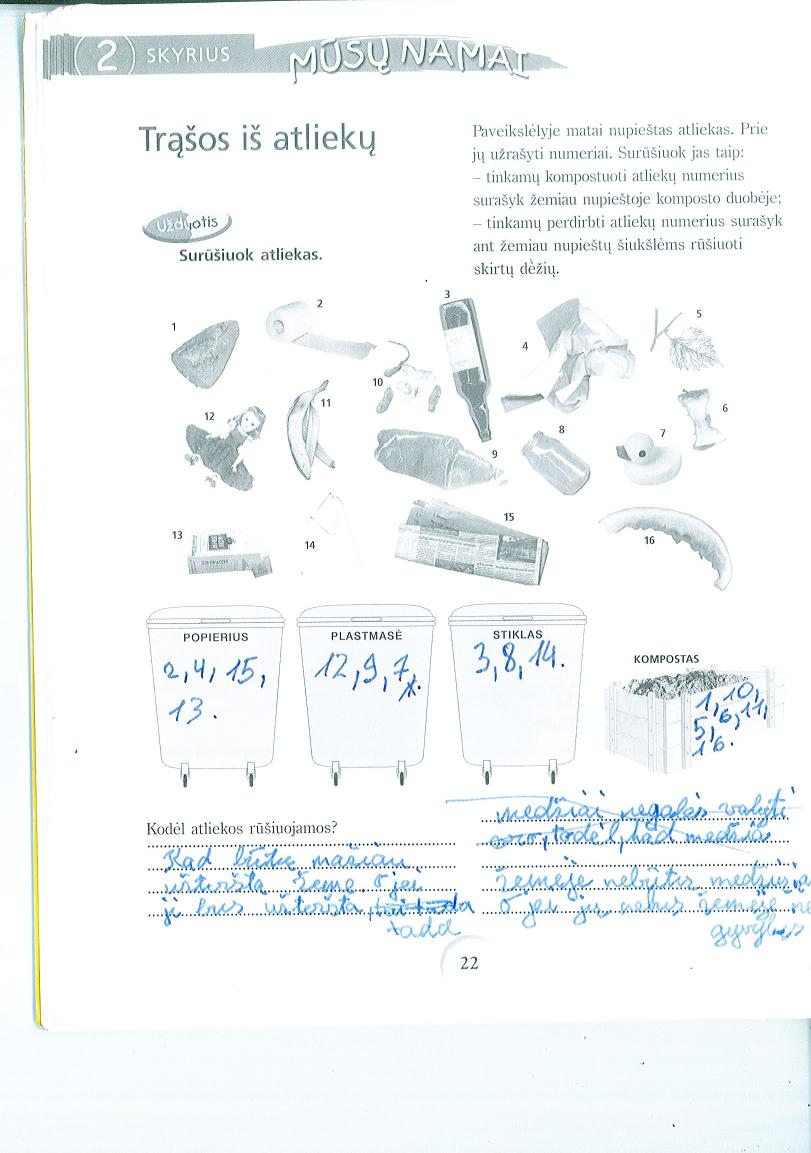 2 SKYRIUS
MŪSŲ NAMAI
Trąšos iš atliekų
Užduotis
Surūšiuok atliekas.
Paveikslėlyje matai nupieštas atliekas. Prie
jų užrašyti numeriai. Surūšiuok jas taip:
– tinkamų kompostuoti atliekų numerius
surašyk žemiau nupieštoje komposto duobėje;
– tinkamų perdirbti atliekų numerius surašyk
ant žemiau nupieštų šiukšlėms rūšiuoti
skirtų dėžių.
1
2
3
4
5
10
11
12
6
7
8
9
13
14
15
16
POPIERIUS
2, 4, 15,
13.
PLASTMASĖ
12, 9, 7
STIKLAS
3, 8, 14.
KOMPOSTAS
1, 10,
5, 6, 11,
16.
Kodėl atliekos rūšiuojamos?
Kad būtų mažiau
užteršta žemė o jei
ji bus užteršta, tai tada
tada
medžiai negalės valyti
oro, todėl, kad medžiai
žemėje nebūtų medžių
O jei jų nebus žemėje ne
gyvybės
22